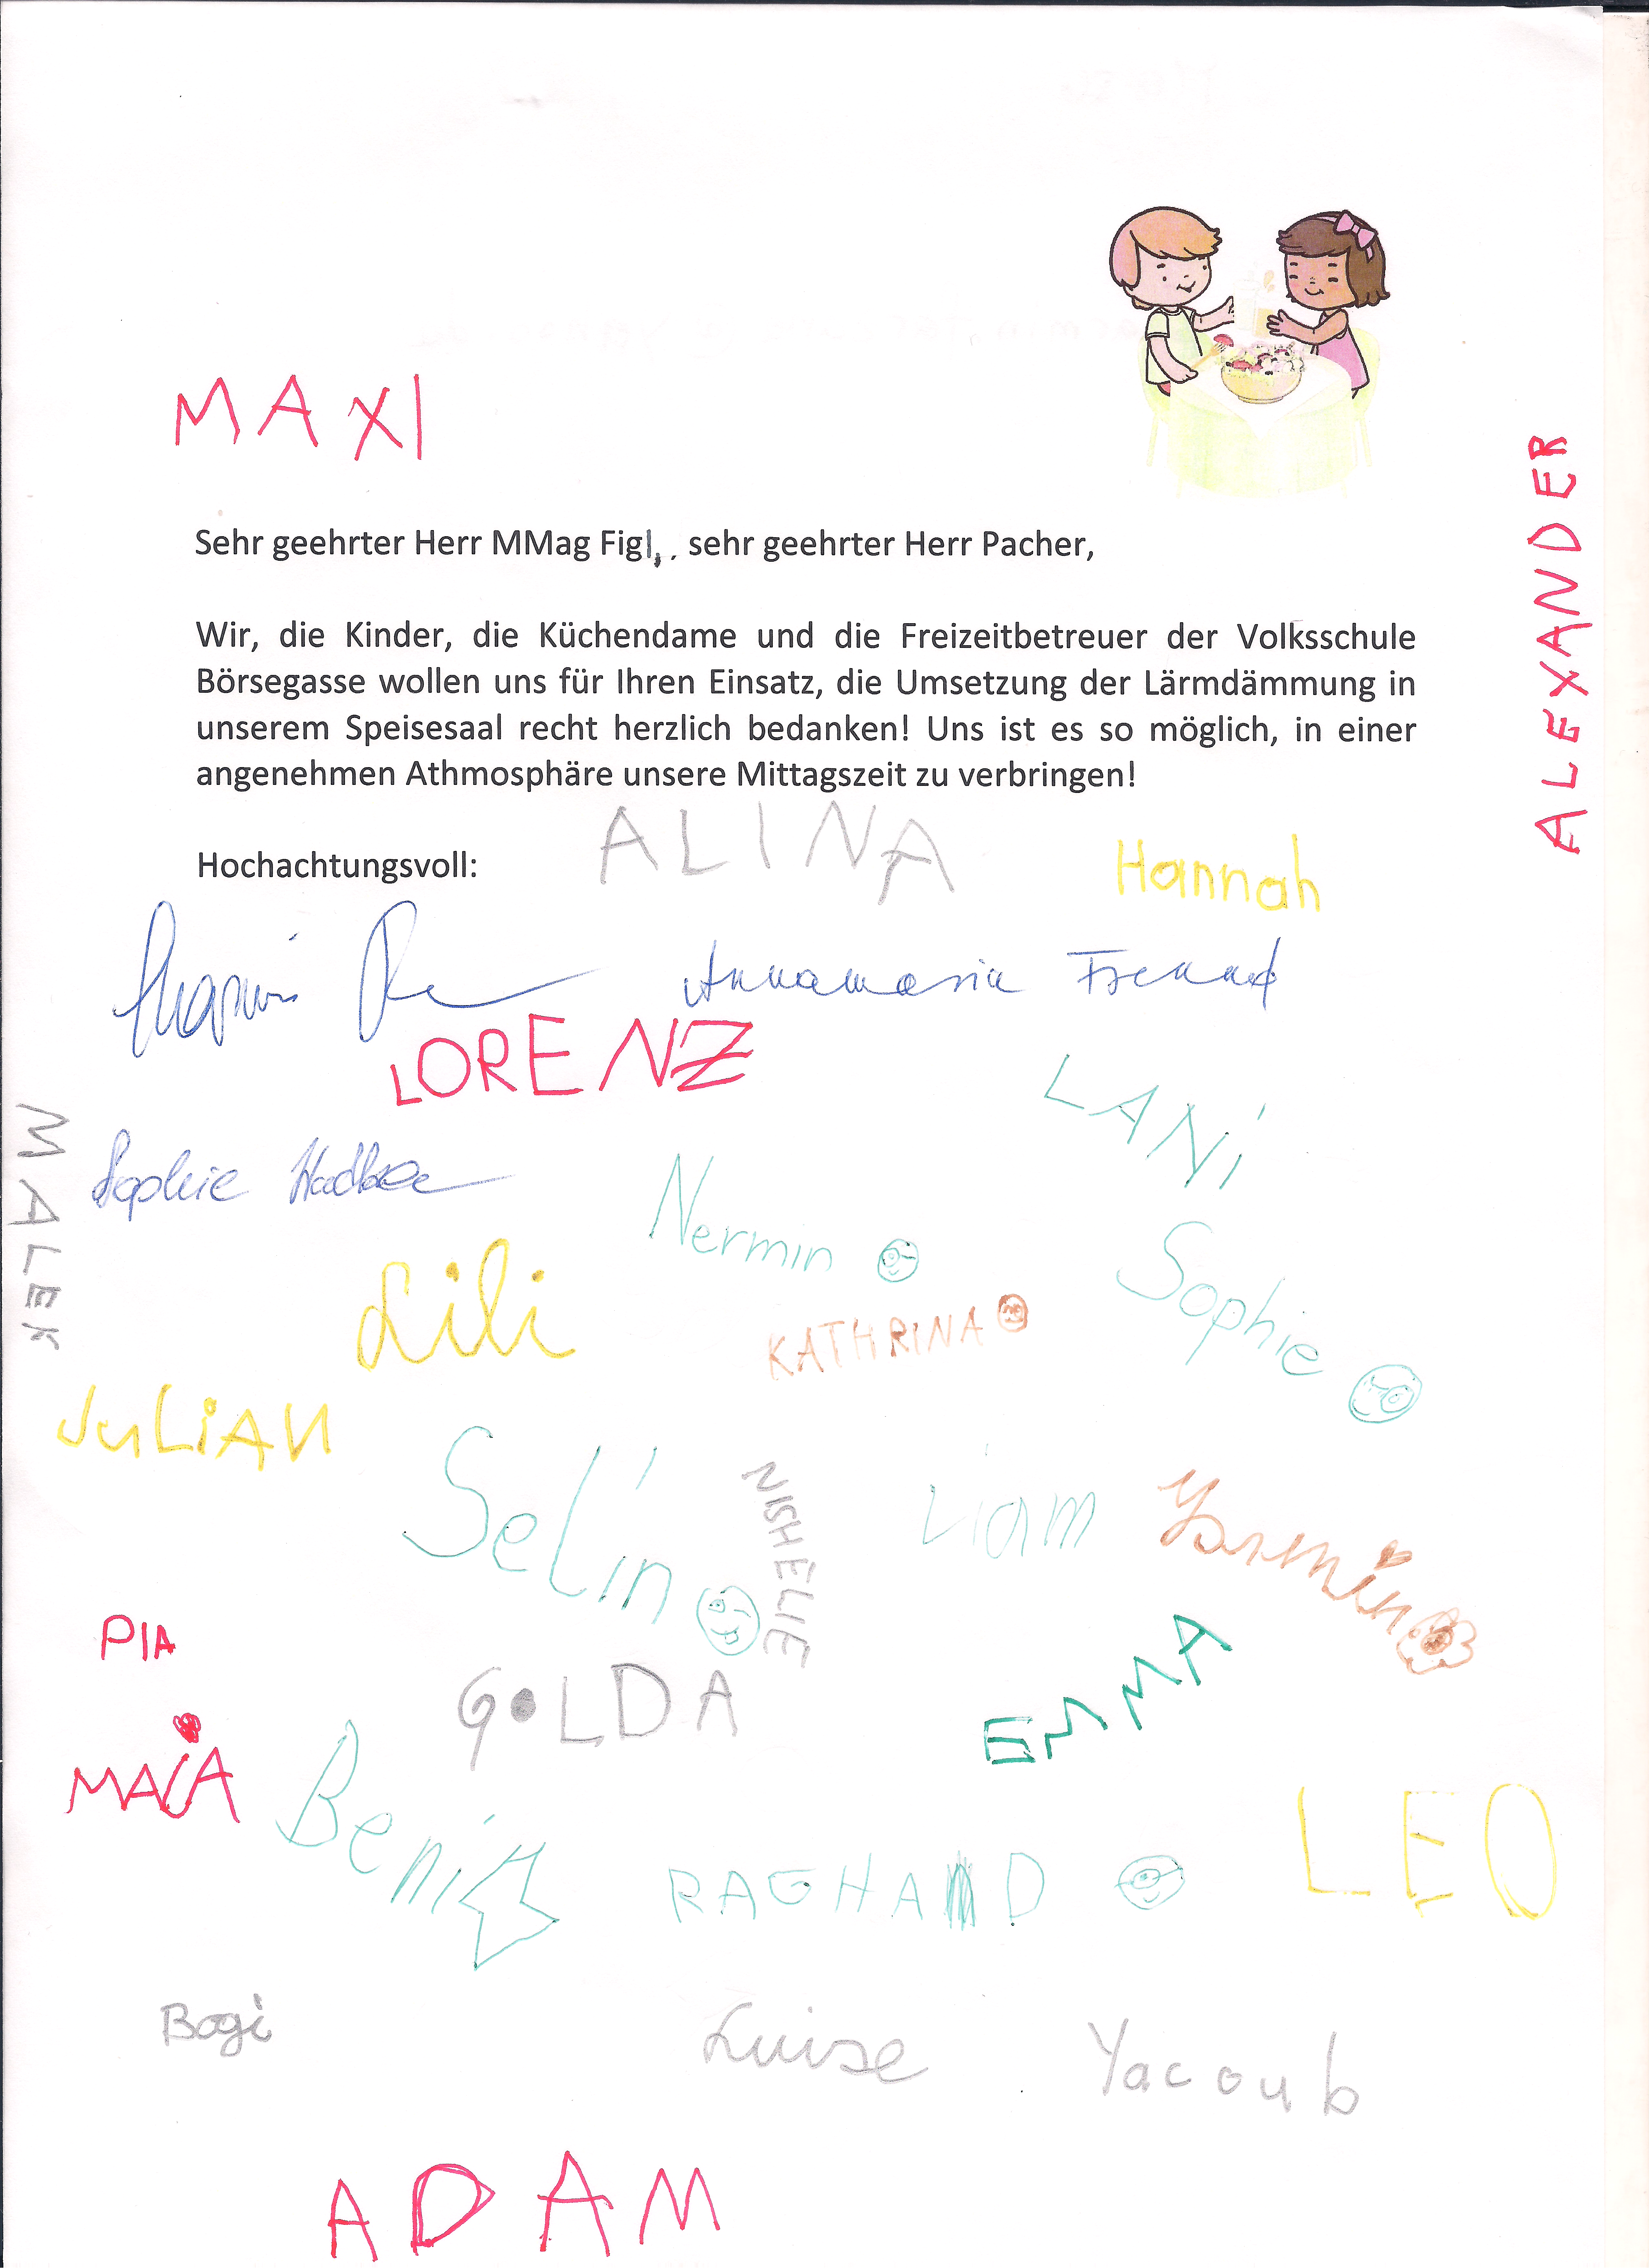 MAXI
ALEXANDER
Sehr geehrter Herr MMag Figl, , sehr geehrter Herr Pacher,
Wir, die Kinder, die Küchendame und die Freizeitbetreuer der Volksschule
Börsegasse wollen uns für Ihren Einsatz, die Umsetzung der Lärmdämmung in
unserem Speisesaal recht herzlich bedanken! Uns ist es so möglich, in einer
angenehmen Athmosphäre unsere Mittagszeit zu verbringen!
ALINA
Hannah
Hochachtungsvoll:
Annamaria Freund
LORENZ
LANi
MALEK
Sophie
Nermin
Sophie
Lili
KATHRINA
JuLiAN
Selin
NISHELIE
Liam
Yasmin
PIA
GOLDA
EMMA
MAiA
Beni
RAGHAD
LEO
Bogi
Luise
Yacoub
ADAM